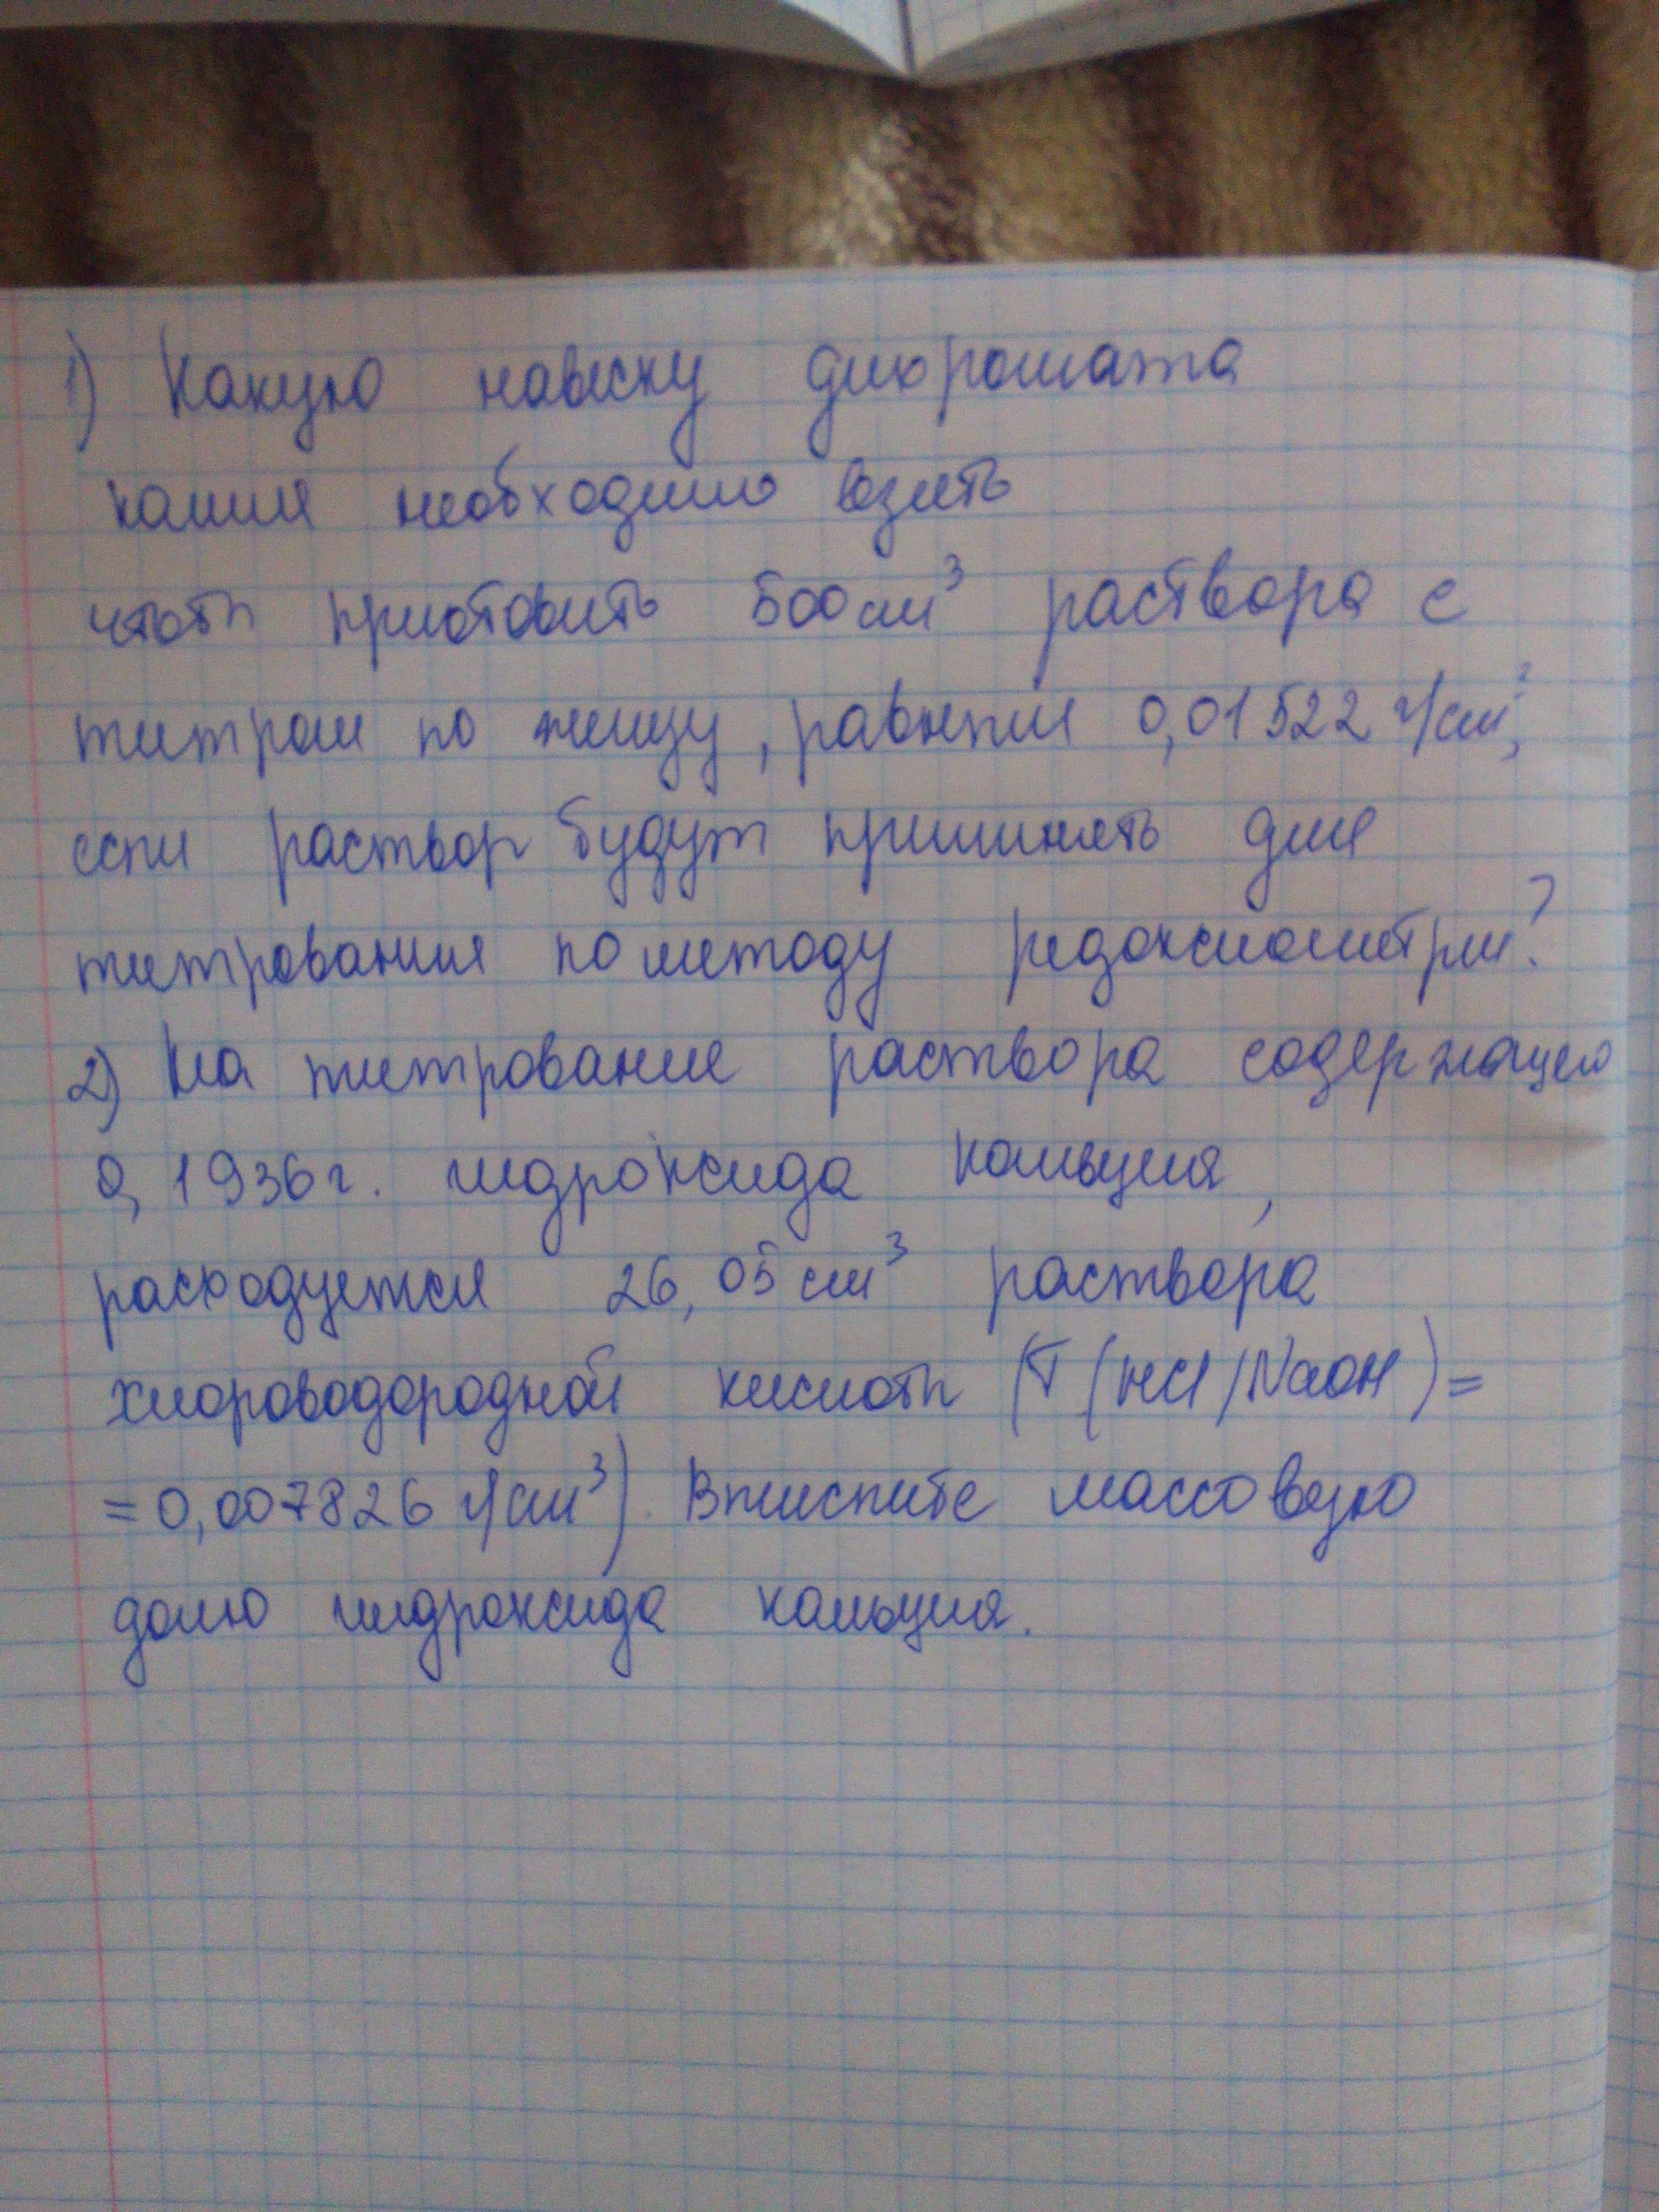 1) Какую навеску дихромата
калия необходимо взять
чтобы приготовить 500 см³ раствора с
титром по железу, равным 0,01522 г/см³,
если раствор будут применять для
титрования по методу редоксиометрии?
2) На титрование раствора содержащего
0,1936 г. гидроксида кальция,
расходуется 26,05 см³ раствора
хлороводородной кислоты (T (HCl/NaOH) =
= 0,007826 г/см³). Вычислите массовую
долю гидроксида кальция.